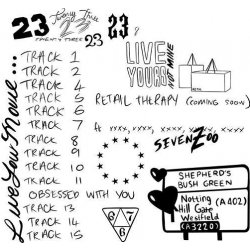 23
Being Three
23
TWENTY THREE
23
23
LIVE
YOURS
NOT MINE
TRACK 1
TRACK 2
TRACK 15
TRACK 6
TRACK 7
TRACK 8
TRACK 9
TRACK 10
TRACK 11
OBSESSED WITH YOU
TRACK 13
TRACK 14
TRACK 15
Live Laugh
RETAIL THERAPY (COMING SOON)
ft xxxx, xxxx, xxxxx, xx
SEVENZOO
6 7
7
SHEPHERD'S
BUSH GREEN
Notting
Hill Gate (A402)
Westfield
(A3220)